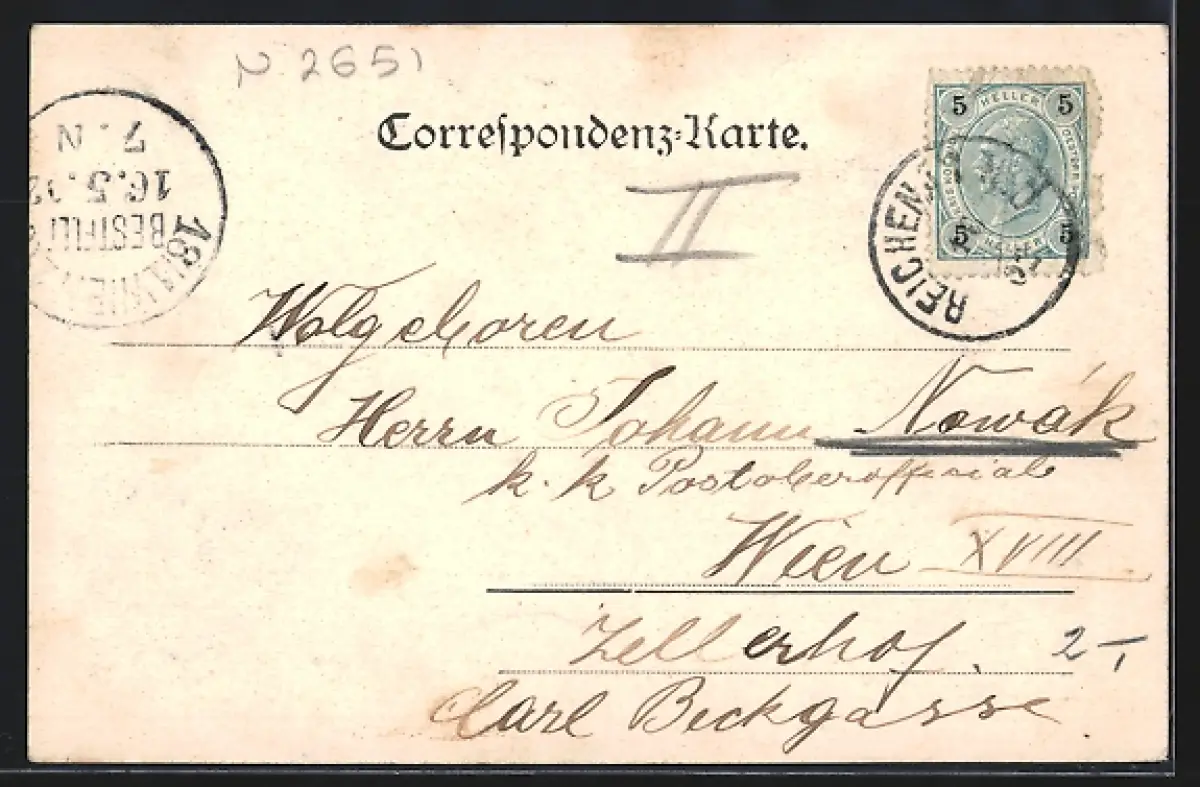 N 2651
Correspondenz-Karte.
5 HELLER 5
5 HELLER 5
REICHEN
II
7. N
16.5.02
BESTELLT
18/1 WIEN
Wolgeboren
Herrn Johann Nowák
k. k Postoberoffizial
Wien XVIII
Zellerhof. 2-,
Carl Beckgasse